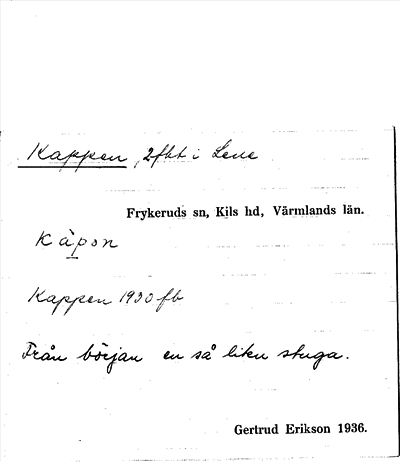 Kappen, 2fbt i Lene
Frykeruds sn, Kils hd, Värmlands län.
kàpon
Kappen 1930 fb
Från början en så liten stuga.
Gertrud Erikson 1936.